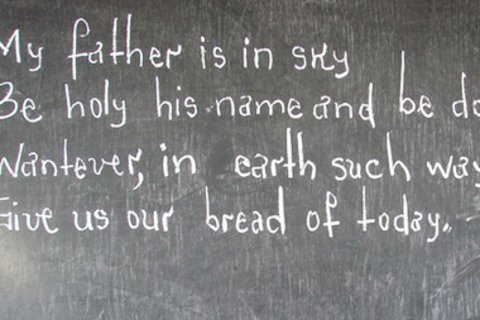 My father is in sky
Be holy his name and be do
Wantever, in earth such way
Give us our bread of today.